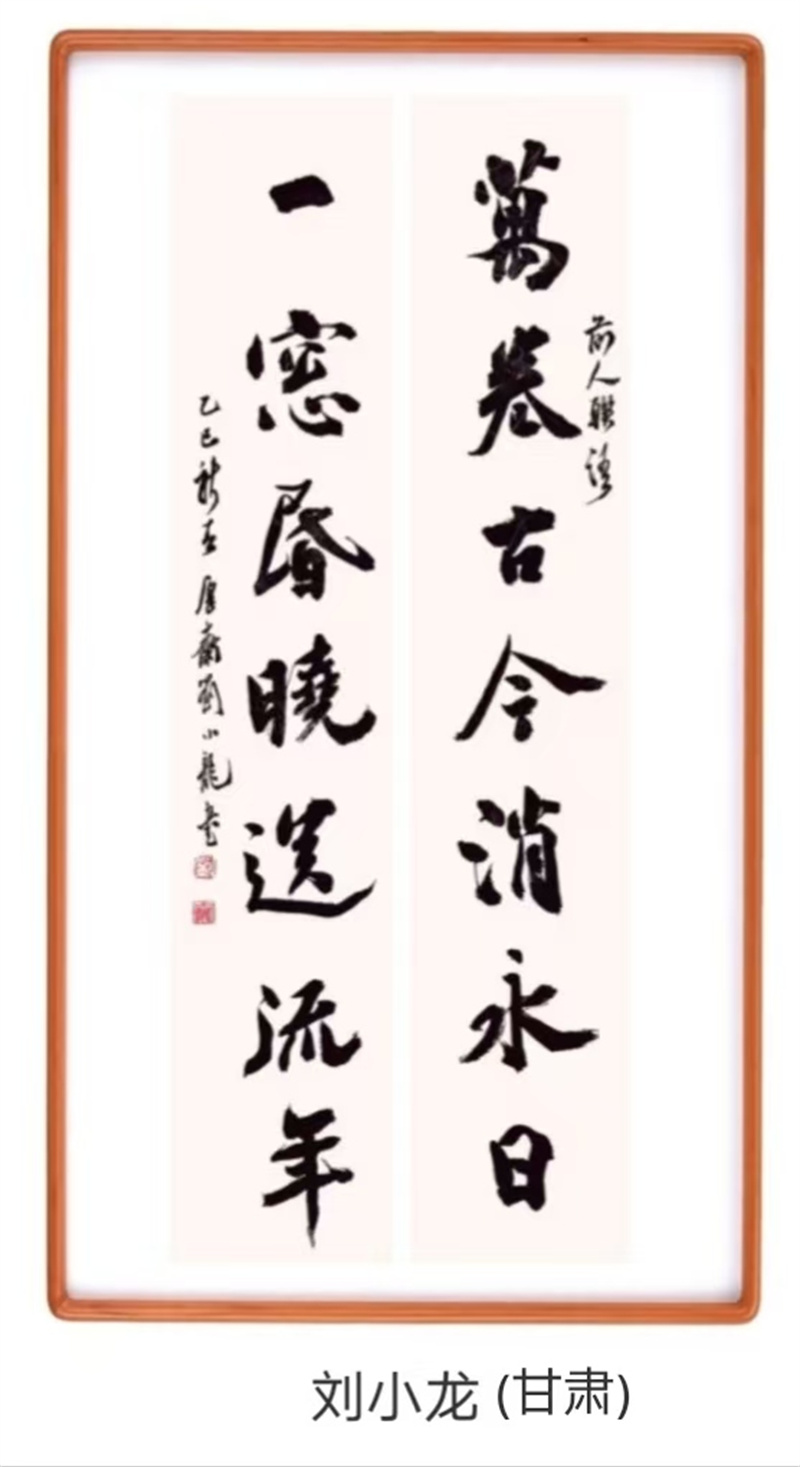 萬卷古今消永日
前人聯語
一窓昏曉送流年
乙巳新春厚齋劉小龍書
刘小龙(甘肃)